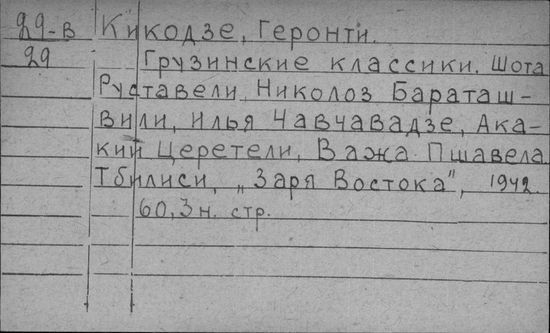 29-в Кикодзе, Геронти.
29 Грузинские классики. Шота
Руставели, Николоз Бараташ-
вили, Илья Чавчавадзе, Ака-
кий Церетели, Важа Пшавела.
Тбилиси, „Заря Востока", 1942.
60,3 н. стр.